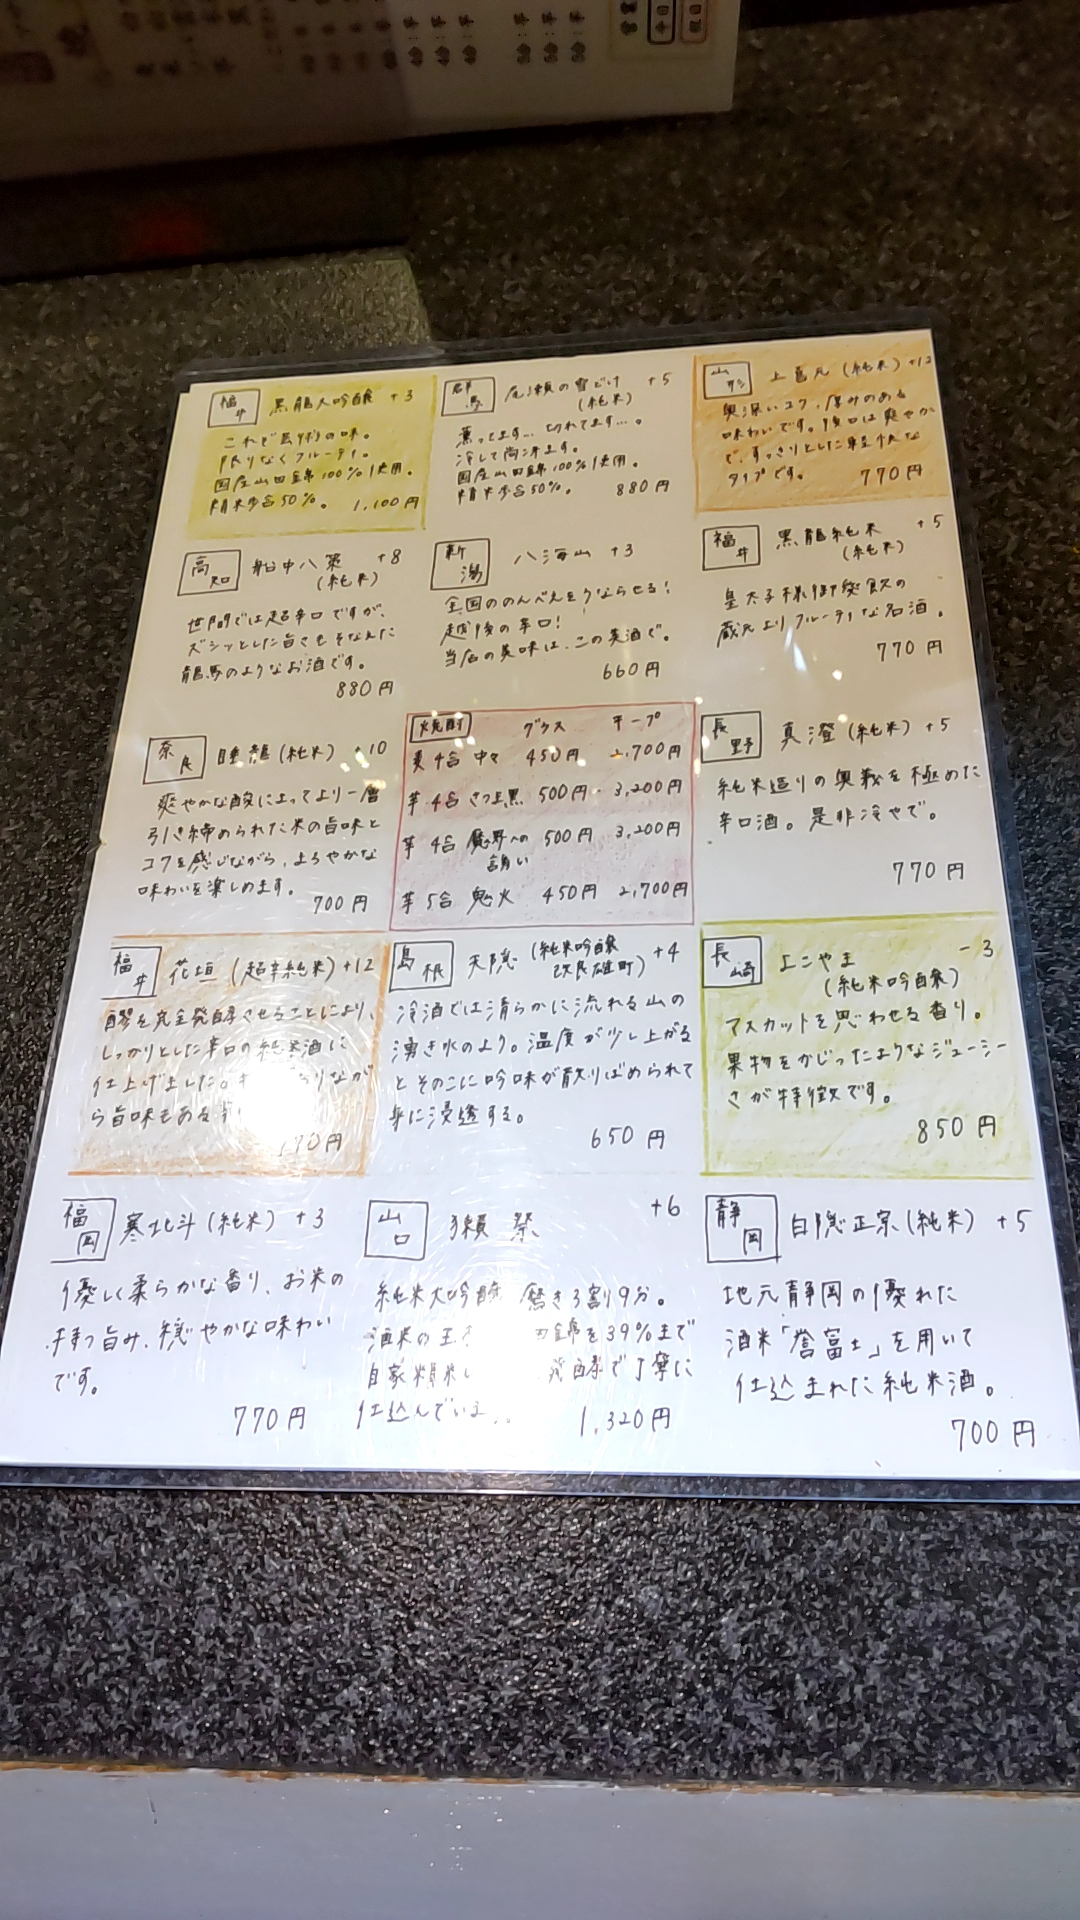 福井 黒龍大吟醸 +3
これぞ吟醸の味。
限りなくフルーティ。
国産山田錦100%使用。
精米歩合50%。 1,100円
群馬 尾瀬の雪どけ +5
(純米)
薫ってます… 切れてます…。
冷して尚冴ます。
国産山田錦100%使用。
精米歩合50%。 880円
山形 上喜元 (純米) +12
奥深いコク、厚みのある
味わいです。後口は爽やか
で、すっきりとした軽快な
タイプです。 770円
高知 船中八策 +8
(純米)
世間では超辛口ですが、
ズシッとした旨さをそなえた
龍馬のようなお酒です。
880円
新潟 八海山 +3
全国ののんべえをうならせる!
越後の辛口!
当店の美味は、この美酒で。
660円
福井 黒龍純米 +5
(純米)
皇太子様御愛飲の
蔵元よりフルーティな名酒。
770円
奈良 睡龍 (純米) +10
爽やかな酸によってより一層
引き締められた米の旨味と
コクを感じながら、まろやかな
味わいを楽しめます。
700円
焼酎 グラス キープ
麦 4合 中々 450円 2,700円
芋 4合 さつま黒 500円 3,200円
芋 4合 魔界への誘い 500円 3,200円
芋 5合 鬼火 450円 2,700円
長野 真澄 (純米) +5
純米造りの奥義を極めた
辛口酒。是非冷やで。
770円
福井 花垣 (超辛純米) +12
醪を完全発酵させることにより、
しっかりとした辛口の純米酒に
仕上げました。
ら旨味もある
70円
島根 天隠 (純米吟醸 改良雄町) +4
冷酒では清らかに流れる山の
湧き水のよう。温度が少し上がる
とそのこに吟味が散りばめられて
身に浸透する。
650円
長崎 よこやま -3
(純米吟醸)
マスカットを思わせる香り。
果物をかじったようなジューシー
さが特徴です。
850円
福岡 寒北斗 (純米) +3
優しく柔らかな香り、お米の
持つ旨み、穏やかな味わい
です。
770円
山口 獺祭 +6
純米大吟醸 磨き3割9分。
酒米の王 田錦を39%まで
自家精米し 発酵で丁寧に
仕込んでいます。
1,320円
静岡 白隠正宗 (純米) +5
地元静岡の優れた
酒米「誉富士」を用いて
仕込まれた純米酒。
700円